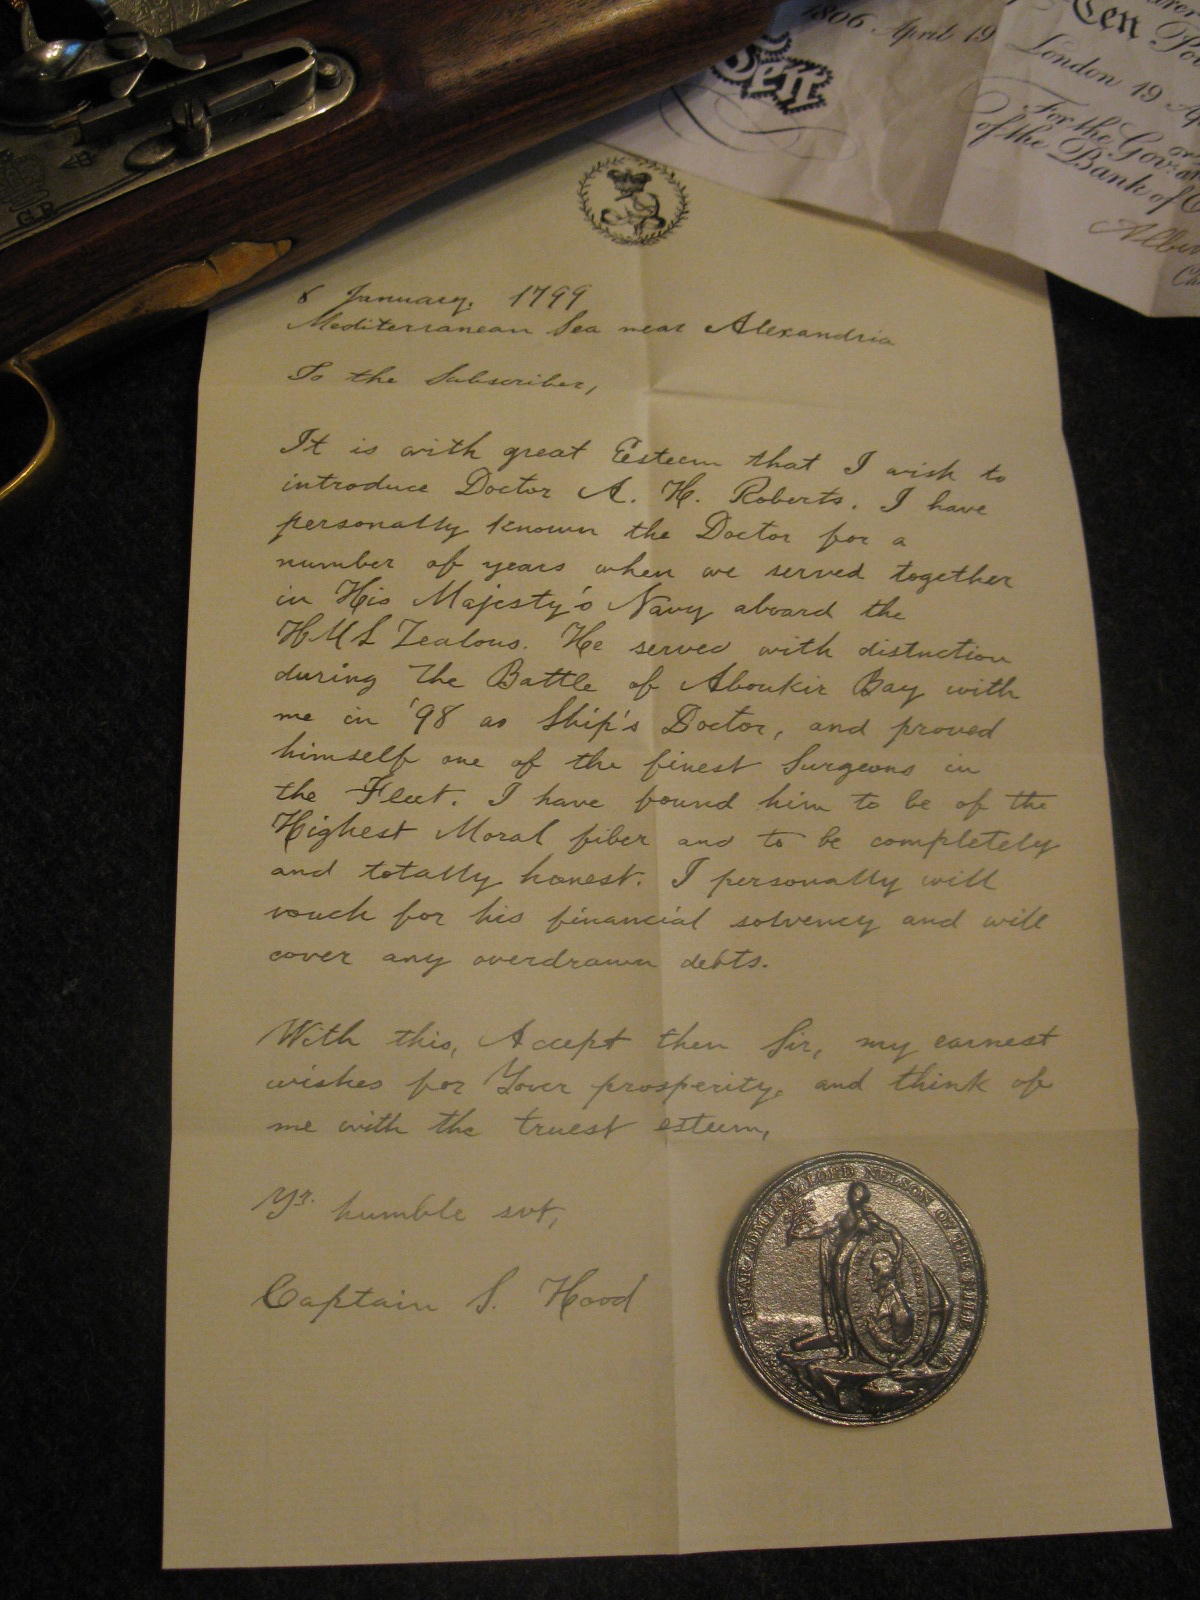 G R
1806 April 19
Ten
Ten
London 19
For the Gov.
of the Bank of
January, 1799
Mediterranean Sea near Alexandria
To the Subscriber,
It is with great Esteem that I wish to
introduce Doctor A. H. Roberts. I have
personally known the Doctor for a
number of years when we served together
in His Majesty's Navy aboard the
HMS Zealous. He served with distnction
during The Battle of Aboukir Bay with
me in '98 as Ship's Doctor, and proved
himself one of the finest Surgeons in
the Fleet. I have found him to be of the
Highest Moral fiber and to be completely
and totally honest. I personally will
vouch for his financial solvency and will
cover any overdrawn debts.
With this, Accept then Sir, my earnest
wishes for Yover prosperity, and think of
me with the truest esteem,
Yr. humble svt,
Captain S. Hood
REAR ADMIRAL LORD NELSON OF THE NILE